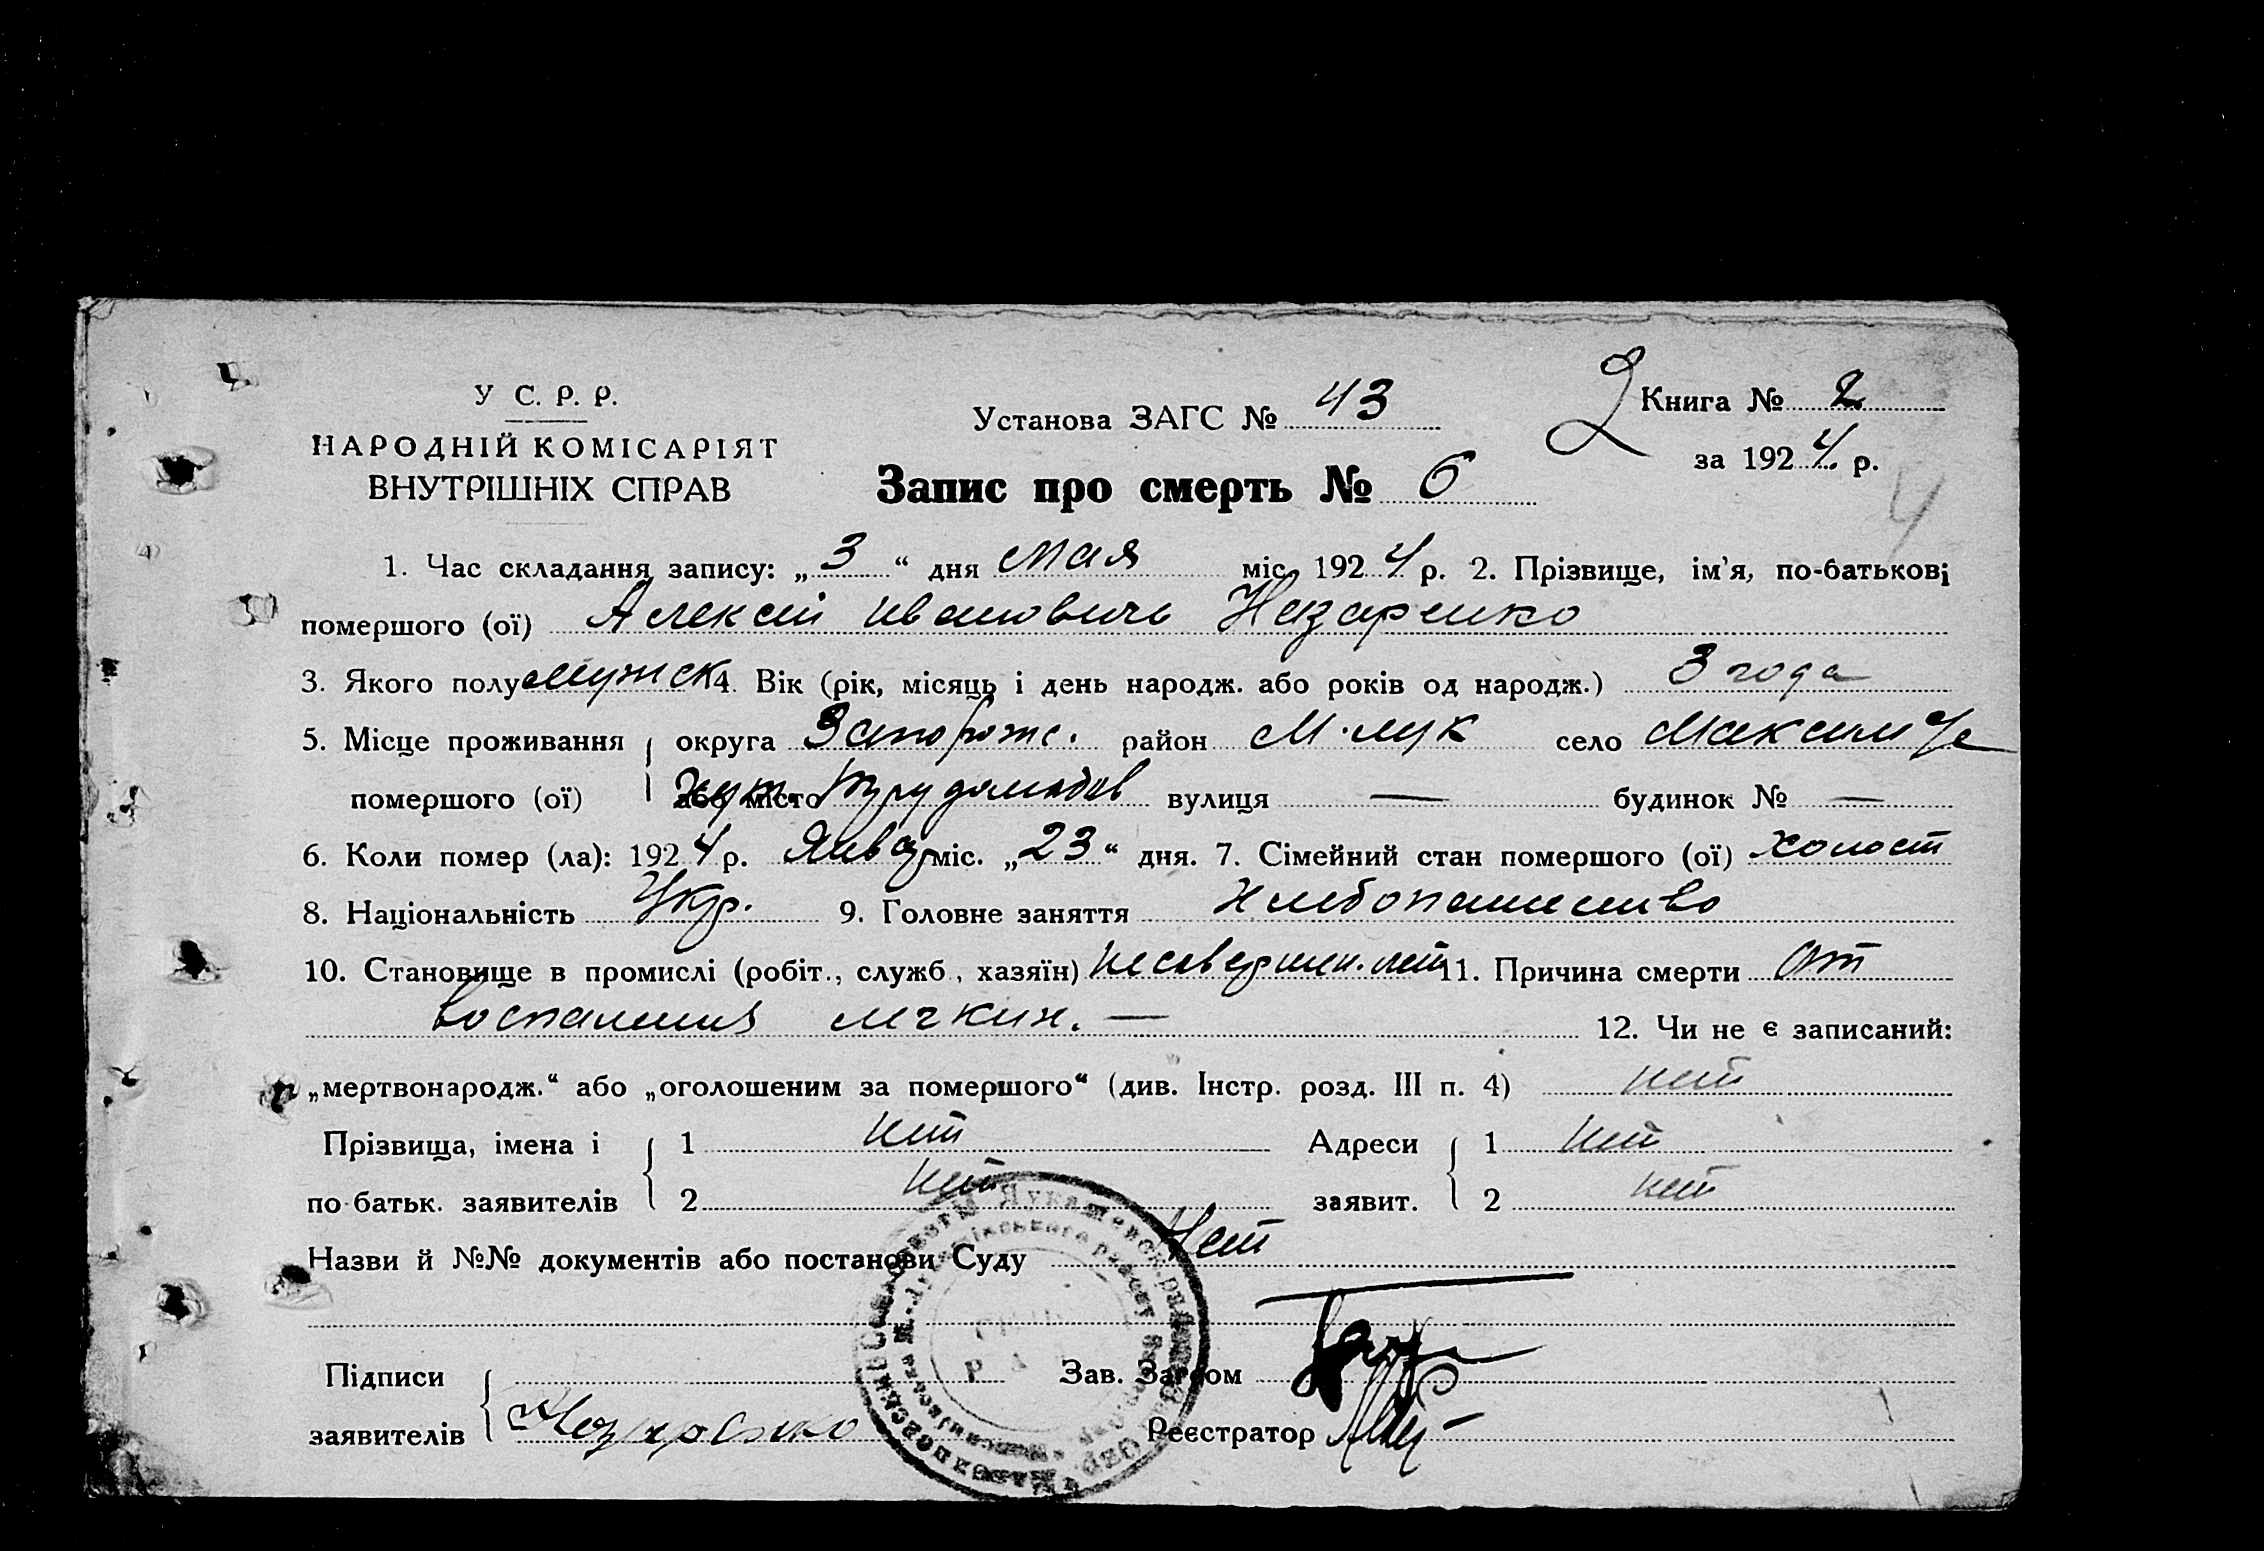 У С. Р. Р.
НАРОДНІЙ КОМІСАРІЯТ
ВНУТРІШНІХ СПРАВ
Установа ЗАГС № 43
2
Книга № 2
за 1924 р.
4
Запис про смерть № 6
1. Час складання запису: „3“ дня Мая міс. 1924 р. 2. Прізвище, ім'я, по-батькові
помершого (ої) Алексей Ивановичь Назаренко
3. Якого полу мужск 4. Вік (рік, місяць і день народж. або років од народж.) 3 года
5. Місце проживання округа Запорож. район М.-лук село
помершого (ої) або місто хут. Трудолюбов вулиця — будинок № —
6. Коли помер (ла): 1924 р. Январ міс. „23“ дня. 7. Сімейний стан помершого (ої) холост
8. Національність Укр. 9. Головне заняття Хлебопашество
10. Становище в промислі (робіт., служб., хазяїн) несовершен. лет 11. Причина смерти От
воспаления легких. — 12. Чи не є записаний:
„мертвонародж.“ або „оголошеним за помершого“ (див. Інстр. розд. III п. 4) нет
Прізвища, імена і 1 нет Адреси 1 нет
по-батьк. заявителів 2 нет заявит. 2 нет
Назви й №№ документів або постанови Суду Нет
Підписи Зав. Загсом
заявителів Назаренко Реєстратор